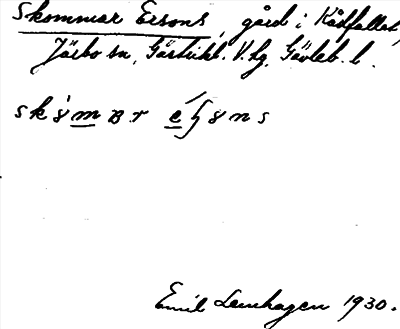 Skommar Ersons, gård i Kådfallet,
Järbo sn, Gästrikl. V. hg, Gävleb. l.
Emil Lenhagen 1930.